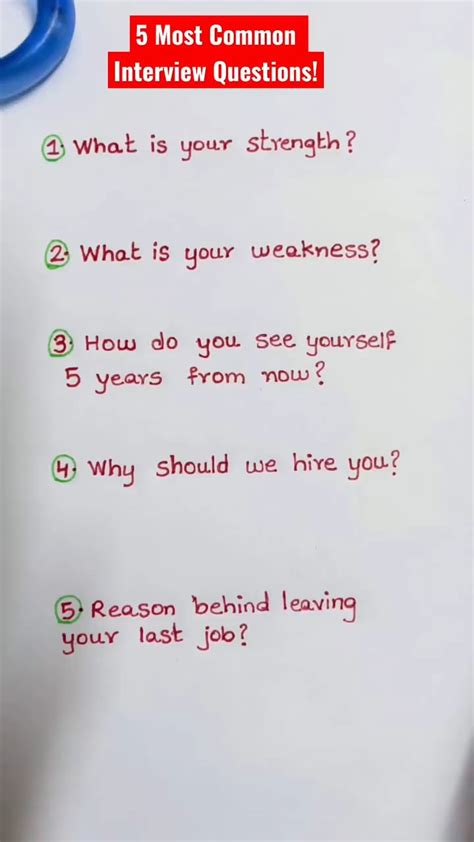 5 Most Common
Interview Questions!
1. What is your strength?
2. What is your weakness?
3. How do you see yourself
5 years from now?
4. Why should we hire you?
5. Reason behind leaving
your last job?